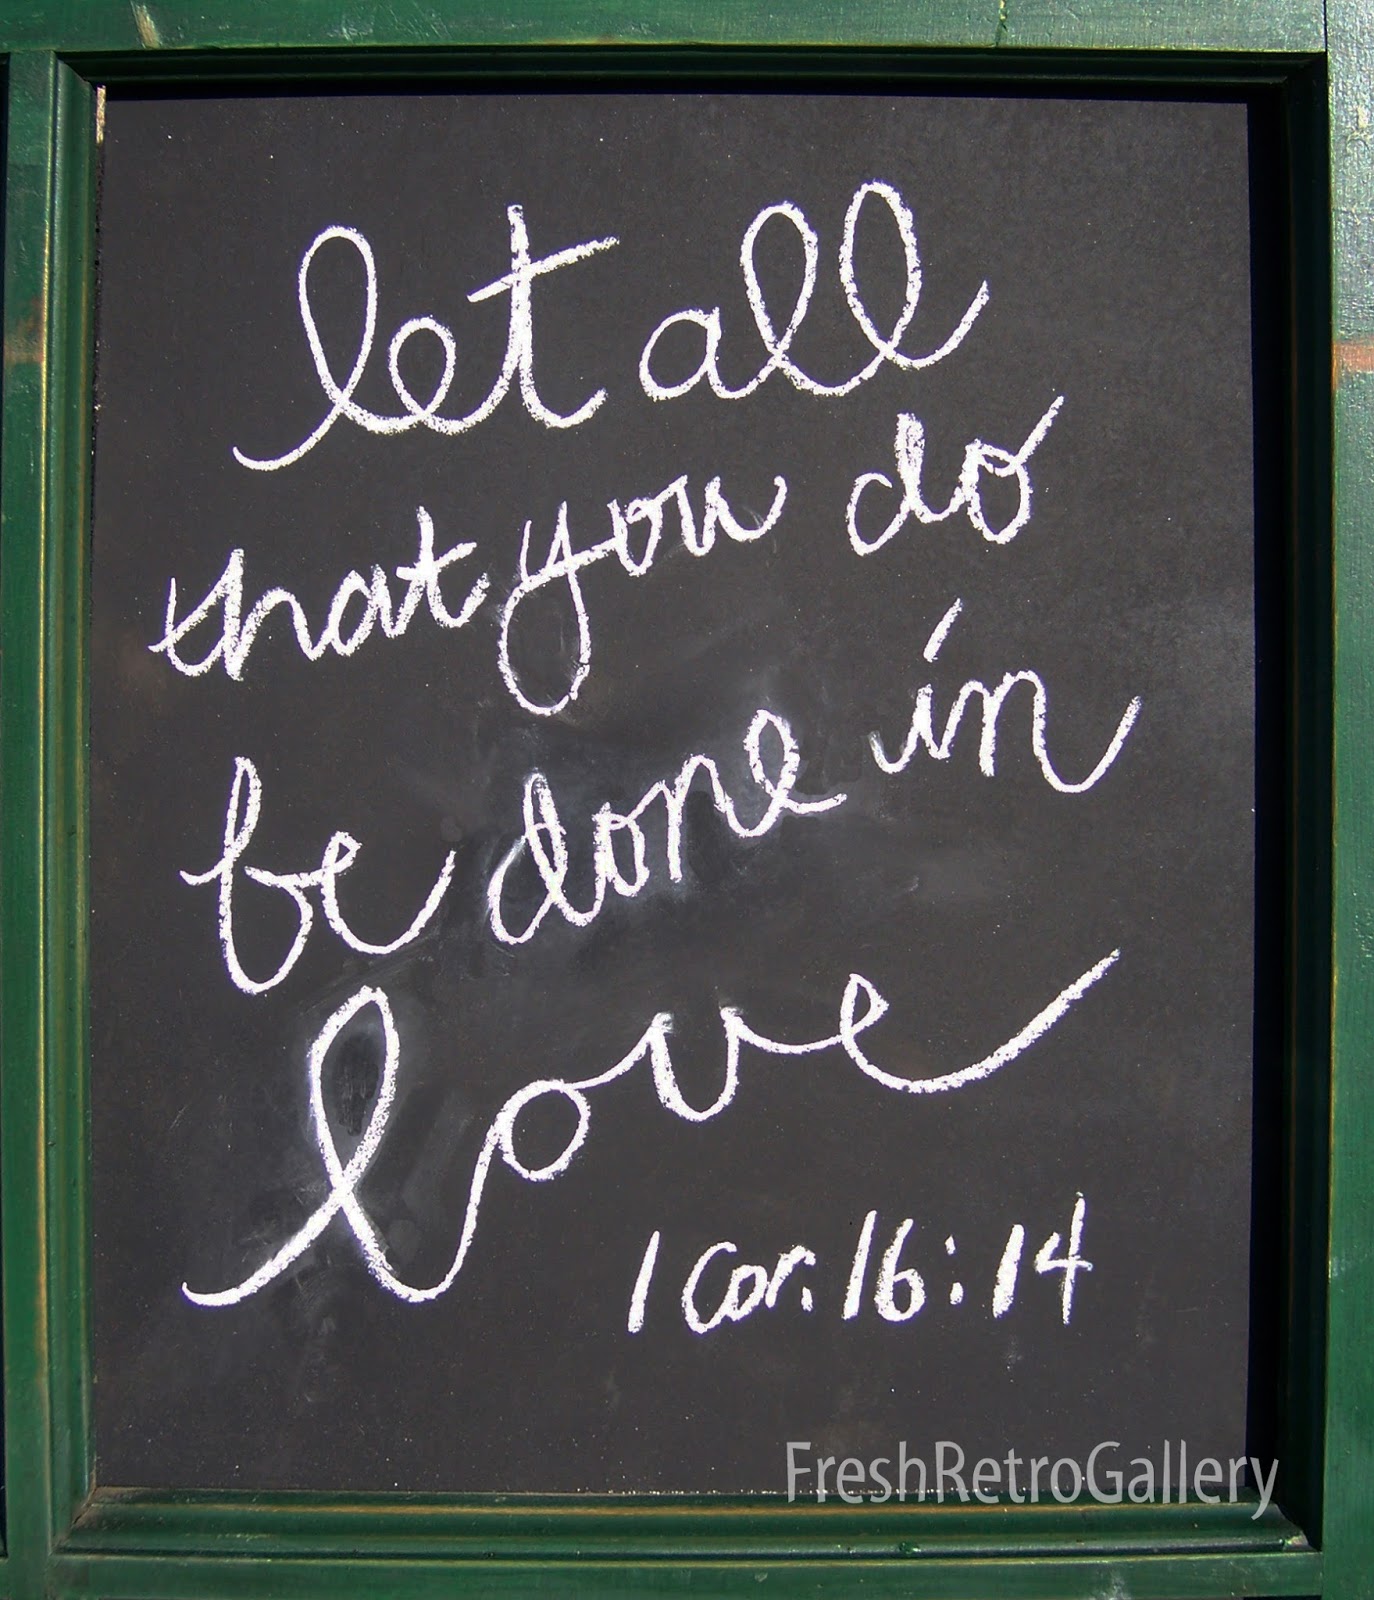 let all
that you do
be done in
love
1 Cor. 16:14
FreshRetroGallery